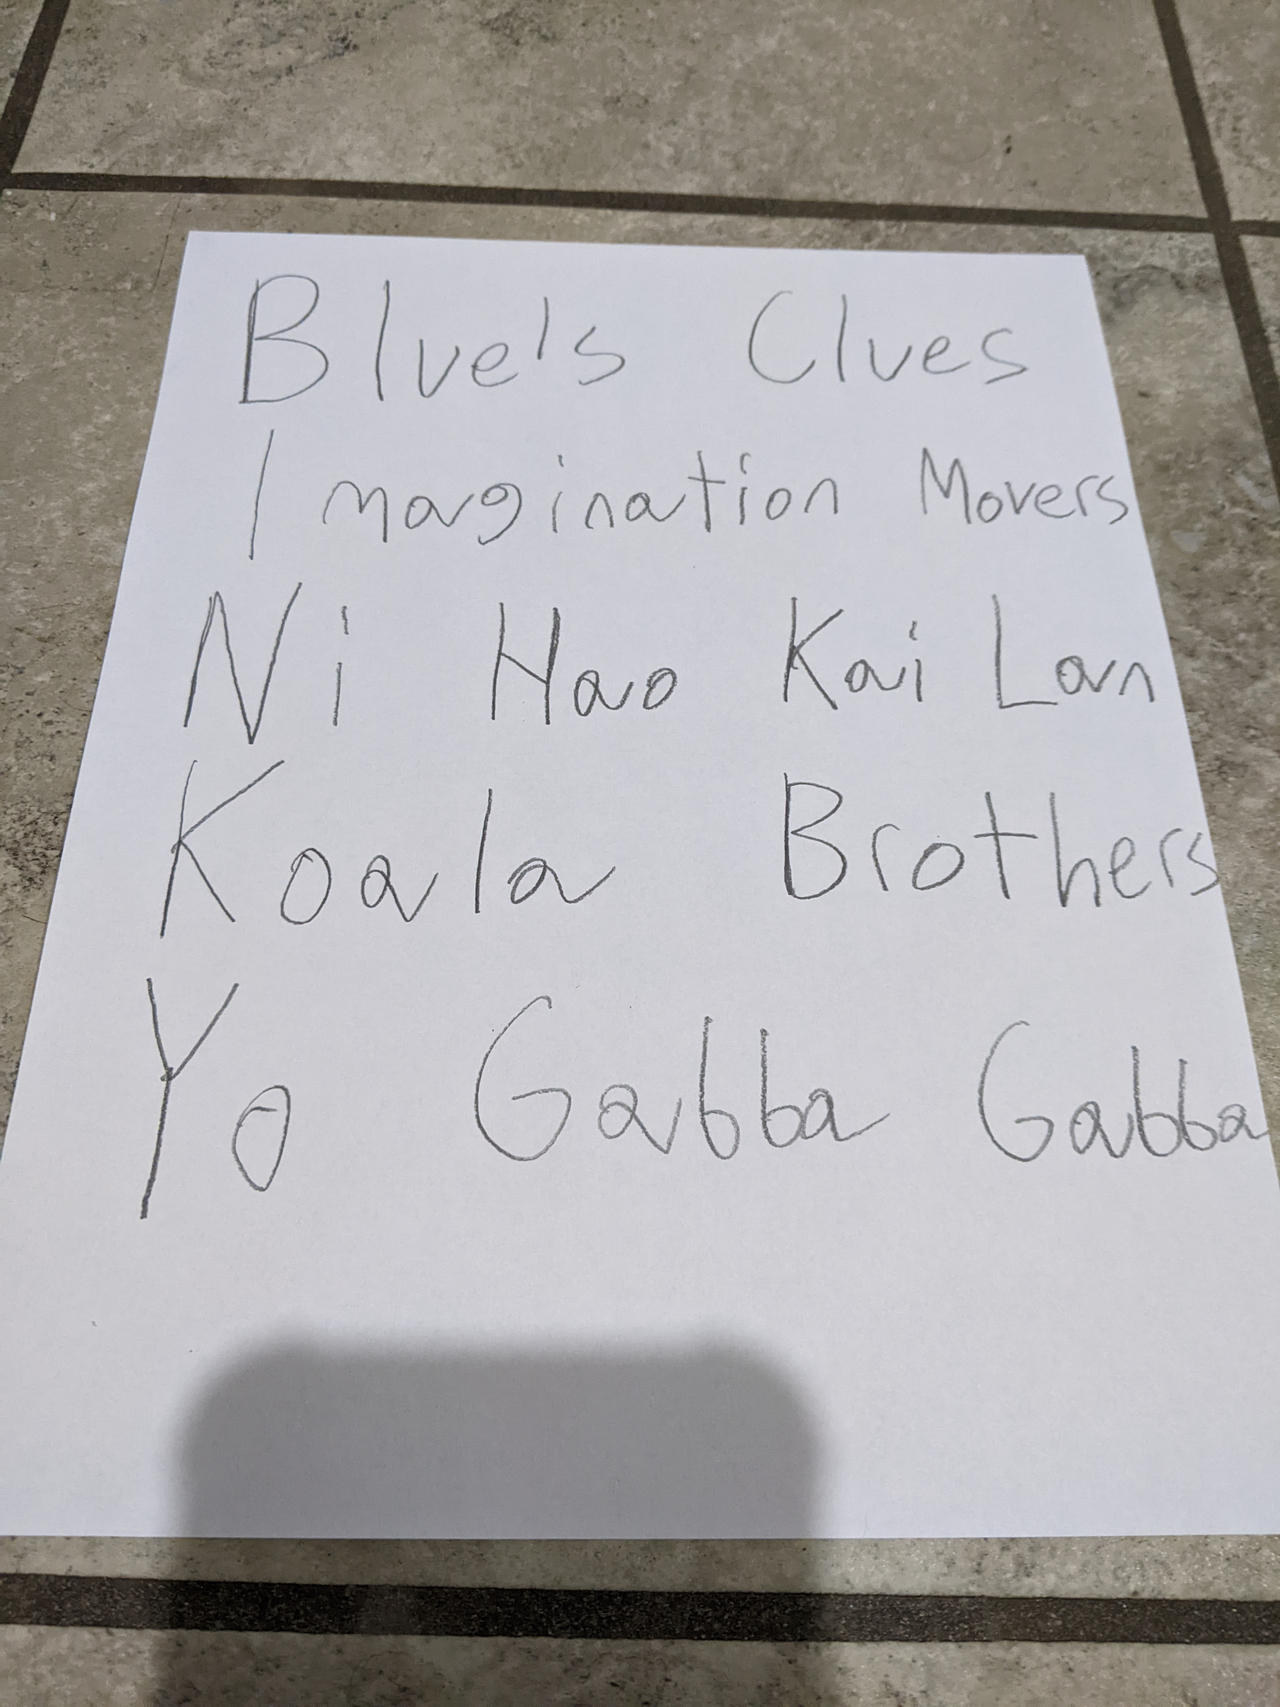 Blue's Clues
Imagination Movers
Ni Hao Kai Lan
Koala Brothers
Yo Gabba Gabba